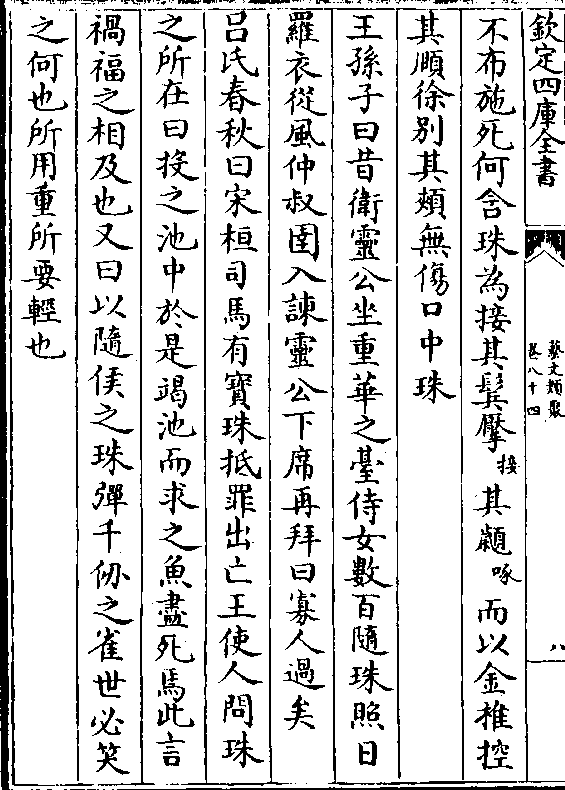 欽定四庫全書
藝文類聚
卷八十四
八
不布施死何含珠為接其鬓擪接其顪啄而以金椎控
其頥徐别其頰無傷口中珠
王孫子曰昔衛靈公坐重華之臺侍女數百隨珠照日
羅衣從風仲叔圉入諫靈公下席再拜曰寡人過矣
吕氏春秋曰宋桓司馬有寳珠抵罪出亡王使人問珠
之所在曰投之池中於是竭池而求之魚盡死焉此言
禍福之相及也又曰以隨侯之珠彈千仞之雀世必笑
之何也所用重所要輕也